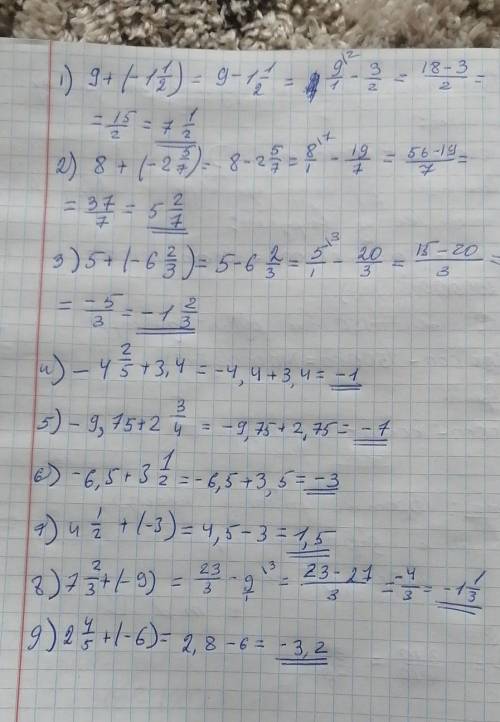 1) 9 + (-1 1/2) = 9 - 1 1/2 = 9\2/1 - 3/2 = 18-3/2 =
= 15/2 = 7 1/2
2) 8 + (-2 5/7) = 8 - 2 5/7 = 8\7/1 - 19/7 = 56-19/7 =
= 37/7 = 5 2/7
3) 5 + (-6 2/3) = 5 - 6 2/3 = 5\3/1 - 20/3 = 15-20/3 =
= -5/3 = -1 2/3
4) -4 2/5 + 3,4 = -4,4 + 3,4 = -1
5) -9,75 + 2 3/4 = -9,75 + 2,75 = -7
6) -6,5 + 3 1/2 = -6,5 + 3,5 = -3
7) 4 1/2 + (-3) = 4,5 - 3 = 1,5
8) 7 2/3 + (-9) = 23/3 - 9\3/1 = 23-27/3 = -4/3 = -1 1/3
9) 2 4/5 + (-6) = 2,8 - 6 = -3,2